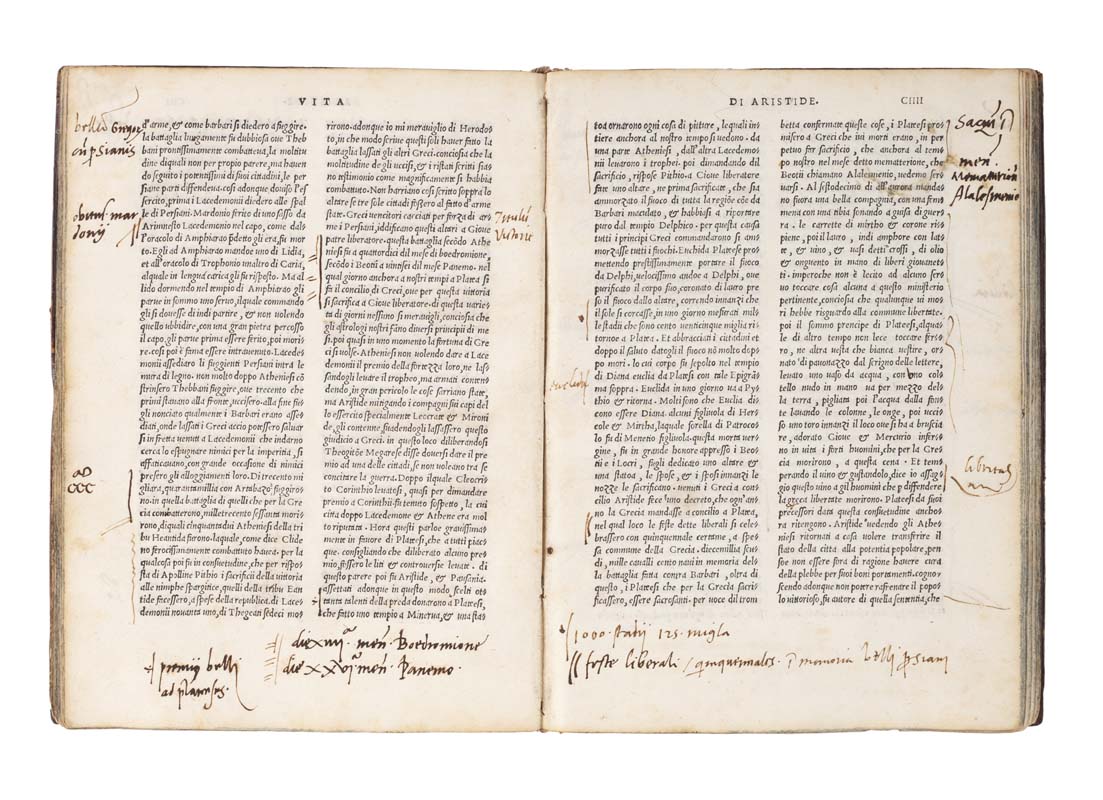 VITA
d'arme, & come barbari si diedero a fuggire.
la battaglia lungamente fu dubbiosa oue The
bani prontissimamente combatteua, la moltitu
dine di quali non per propio parere, ma hauen
do seguito i potentissimi di suoi cittadini, le per
siane parti diffendeua. cosi adonque douiso l'es
sercito, prima i Lacedemonii diedero alle spal
le di Persiani. Mardonio ferito di uno sasso da
Arimnesto Lacedemonio nel capo, come dal
l'oracolo di Amphiarao predetto gli era, fu mor
to. Egli ad Amphiarao mandoe uno di Lidia,
et all'oracolo di Trophonio unaltro di Caria,
alquale in lengua carica gli fu risposto. Ma al
lido dormendo nel tempio di Amphiarao gli
parue in sommo uno seruo, ilquale commando
gli si douesse di indi partire, & non uolendo
quello ubbidire, con una gran pietra percosso
il capo. gli parue prima essere ferito, poi mori
re. cosi poi è fima essere intrauenuto. Lacede=
monii assediaro li fuggienti Persiani intrà le
mura di legno. non molto doppo Atheniesi cō
strinsero Thebbani fuggire, oue trecento che
primi stauano alla fronte, uccisero. alla fine fus
gli nonciato qualmente i Barbari erano asse=
diati, onde lassati i Greci accio potessero saluar
si in fretta uenuti a Lacedemonii che indarno
cerca lo espugnare nimici per la imperitia, si
affaticauano, con grande occasione di nimici
presero gli alloggiamenti loro. Di trecento mi
gliara, quarantamillia con Artabazo suggiro=
no. in quella battaglia di quelli che per la Gre
cia combatterono, milletrecento sessanta mori=
rono, di quali cinquantadui Atheniesi della tri
bu Heantida furono. laquale, come dice Clide
mo ferocissimamente combattuto hauea. per la
qualcosa poi fu in consuetudine, che per rispo=
sta di Apolline Pithio i sacrificii della uittoria
alle nimphe spargitice, quelli della tribu Ean
tide facessero, a spese della republica. di Lace=
demonii nouanta uno, di Thegean sedeci mo=
rirono. adonque io mi merauiglio di Herodos
to, in che modo scriue questi soli hauer fatto la
battaglia lassati gli altri Greci. conciosia che la
moltitudine de gli uccisi, & i ristati scritti sias
no testimonio come magnificamente si habbia
combattuto. Non harriano cosi scritto soppra lo
altare se tre sole cittadi fossero al fatto d'arme
state. Greci uencitori cacciati per forza di ar=
me i Persiani, iddificano questi altari a Gioue
patre liberatore. questa battaglia secōdo Athe
niesi fu a quatordici del mese di boedromione,
secōdo i Beotii a uintisei del mese Panemo. nel
qual giorno anchora a nostri tempi a Platea si
fa il concilio di Greci, oue per questa uittoria
si sacrifica a Gioue liberatore. di questa uaries
ta di giorni nessuno si merauigli, conciosia che
gli astrologi nostri fāno diuersi principii di me
si. poi quasi in uno momento la fortuna di Gre
ci si uolse. Atheniesi non uolendo dare a Lace
demonii il premio della fortezza loro, ne las=
sandogli leuare il tropheo, ma armati contens
dendo, in gran pericolo le cose sariano state,
ma Aristide mitigando i compagni suoi capi del
lo essercito specialmente Leocrate & Mironi
de gli contenne, suadendogli lassassero questo
giudicio a Greci. in questo loco diliberandosi
Theogitōe Megarese disse douersi dare il pre
mio ad una delle cittadi, se non uoleano tra se
concitare la guerra. Doppo ilquale Cleocris
to Corinthio leuatosi, quasi per dimandare
premio a Corinthii fu tenuto sospetto, la cui
citta doppo Lacedemone & Athene era mol
to riputata. Hora questi parloe grauissimas
mente in fauore di Platesi, che a tutti piace=
que. consigliando che diliberato alcuno pre=
mio, sessero le liti & controuersie leuate. di
questo parere poi fu Aristide, & Pausania.
assettati adonque in questo modo scelti ots
tanta talenti della preda donarono a Platesi,
che fatto uno tempio a Minerua, & una stas
bellū Grecor
cū persianis
obitus mar
donij
ad
CCC
Victorie
die xiiij mēs Boedromione
die xxvj mēs Panemo
premij belli
ad plateses
DI ARISTIDE.
CIIII
toa ornarono ogni cosa di pitture, lequali dus
tiere anchora al nostro tempo si uedono. da
una parte Atheniesi, dall'altra Lacedemos
nii leuarono i trophei. poi dimandando dil
sacrificio, rispose Pithio. a Gioue liberatore
fate uno altare, ne prima sacrificate, che sia
ammorzato il fuoco di tutta la regiōe cōe da
Barbari maculato, & habbiasi a riportare
puro dal tempio Delphico. per questa causa
tutti i principi Greci commandarono si am=
morzasse tutti i fuochi. Euchida Platese pro
mettendo prestissimamente portare il fuoco
da Delphi, uelocissimo andoe a Delphi, oue
purificato il corpo suo, coronato di lauro pre
so il fuoco dallo altare, correndo innanzi che
il sole si corcasse, in uno giorno mesurati mils
le stadii che sono cento uenticinque miglia ri=
tornoe a Platea. Et abbracciati i cittadini et
doppo il saluto datogli il fuoco nō molto dopo
po mori. lo cui corpo fu sepolto nel tempio
di Diana euclia da Platesi con tale Epigrā
ma soppra. Euclida in uno giorno ua a Py=
thio & ritorna. Molti sono che Euclia di=
cono essere Diana. alcuni figliuola di Hers
cole & Mirtha, laquale sorella di Patroco
lo fu di Menetio figliuola. questa morta uer=
gine, fu in grande honore appresso i Beos
tii e i Locri, fugli dedicato uno altare &
una statoa, le spose, & i sposi innanzi le
nozze le sacrificano. uenuti i Greci a con=
cilio Aristide fece uno decreto, che ogn'an=
no la Grecia mandasse a concilio a Platea,
nel qual loco le feste dette liberali si celes
brassero con quinquennale certame, a spes
sa commune della Grecia. diecemillia scus
di, mille caualli cento naui in memoria dels
la battaglia fatta contra Barbari, oltra di
questo, i Platesi che per la Grecia sacris
ficassero, essere sacrosanti. per uoce dil trom
betta confermate queste cose, i Platesi pros
misero a Greci che iui morti erano, in per
petuo far sacrificio, che anchora al tems
po nostro nel mese detto memattterione, che
Beotii chiamano Alalcomenio, uedemo sers
uarsi. Al sestodecimo di all'aurora mandas
no fuora una bella compagnia, con una fems
mena con una tibia sonando a guisa di guers
raro. le carrette di mirtho & corone ris
piene, poi il lauro, indi amphore con lats
te, & uino, & uasi detti crossi, di olio
& onguento in mano di liberi giouanets
ti. imperoche non è lecito ad alcuno ser
uo toccare cosa alcuna a questo ministerio
pertinente, conciosia che qualunque ui mos
ri hebbe risguardo alla commune libertate.
poi il sommo prencipe di Platesi, alquas
le di altro tempo non lece toccare ferro=
ro, ne altra uesta che bianca uestire, ors
nato di pauonazzo dal scrigno delle lettere,
leuato uno uaso di acqua, con uno cols
tello nudo in mano ua per mezzo del
la terra, pigliata poi l'acqua dalla fons
te lauando le colonne, le onge, poi uccis
so uno toro innanzi il loco oue si ha a brucia
re, adorato Gioue & Mercurio infers
no in uita i forti huomini, che per la Gre
cia morirono, a questa cena. Et tems
perando il uino & gustandolo, dice io assag
gio questo uino a gli huomini che p diffendere
la greca libertate morirono. Platesi da suoi
precessori data questa consuetudine anchos
ra ritengono. Aristide uedendo gli Athe
niesi ritornati a casa uolere transferire il
stato della città alla potentia popolare, pen
soe non essere fora di ragione hauere cura
della plebbe per suoi boni portamenti. cogno=
scendo adonque non poere rafrenare il popo
lo uittorioso, fu autore di quella sententia, che
mēn.
Alalcomenio
1000 stadij 125 migla
feste liberali / quinquennalos. ī memoria belli persiani